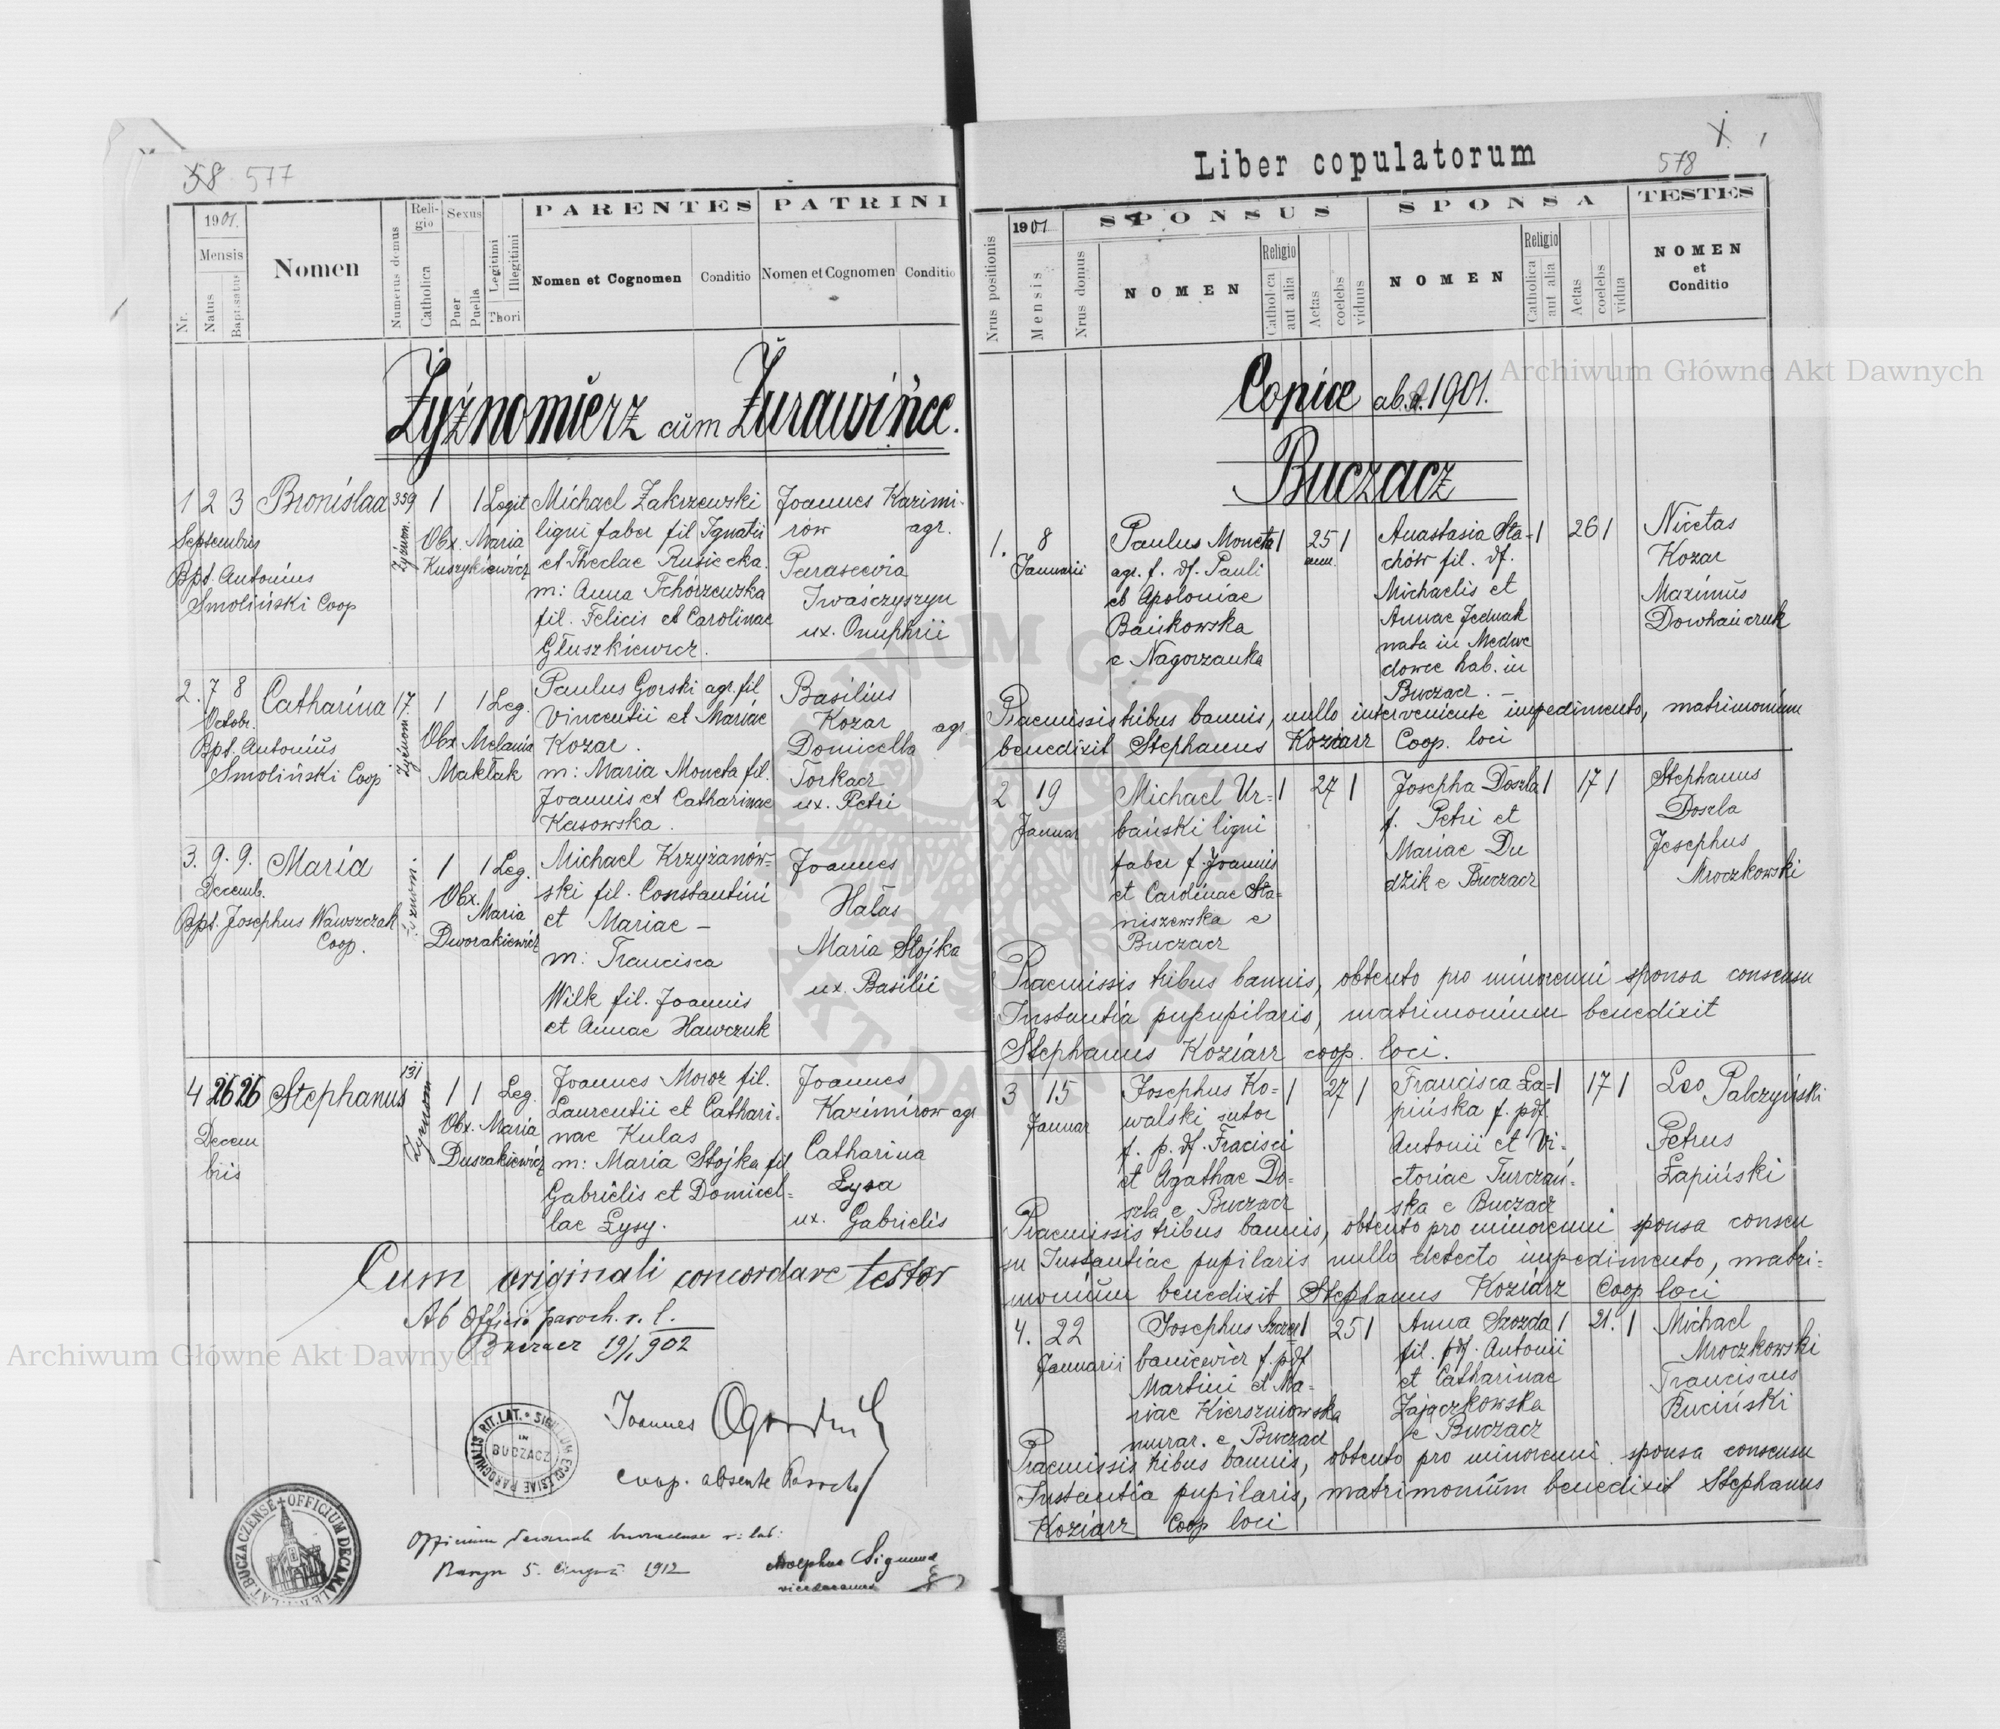 58 577
1901.
Mensis
Nr.
Natus
Baptisatus
Nomen
Numerus domus
Religio
Catholica
Sexus
Puer
Puella
Legitimi
Illegitimi
Thori
PARENTES
Nomen et Cognomen
Conditio
PATRINI
Nomen et Cognomen
Conditio
Żyżnomierz cum Żurawińce.
1 2 3 Bronislaa 359 1 1 Legit
Septembris
Bpt. Antonius
Smoliński Coop
Żyznom.
Obx. Maria
Kuszykiewicz
Michael Zakrzewski
ligni faber fil Ignatii
et Theclae Rusiecka.
m: Anna Tchórzewska
fil. Felicis et Carolinae
Głuszkiewicz.
Joannes Kazimi-
rów agr.
Parascevia
Iwaśczyszyn
ux. Onuphrii
2. 7 8 Catharina 17. 1 1 Leg.
Octobr.
Bpt. Antonius
Smoliński Coop
Żyznom
Obx Melania
Makłak
Paulus Gorski agr. fil
Vincentii et Mariae
Kozar.
m: Maria Moneta fil.
Joannis et Catharinae
Kasowska.
Basilius
Kozar agr.
Domicella
Torkacz
ux. Petri
3. 9. 9. Maria 1 1 Leg.
Decemb.
Bpt. Josephus Wawszczak
Coop.
Obx.
Maria
Dworakiewicz
Michael Krzyżanów=
ski fil. Constantini
et Mariae —
m: Francisca
Wilk fil. Joannis
et Annae Hawczuk
Joannes
Hałas
Maria Stojka
ux. Basilii
4 26 26 Stephanus 131 1 1 Leg.
Decem
bris
Żyznom
Obx. Maria
Duszakiewicz
Joannes Moroz fil.
Laurentii et Cathari-
nae Kulas
m: Maria Stojka fil
Gabriėlis et Domicel=
lae Łysy.
Joannes
Kazimirow agr
Catharina
Łysa
ux. Gabrielis
Cum originali concordare testor
Ab Officio paroch. r. l.
Buczacz 19/1 902
Joannes
coop. absente Parocho
SIGILLUM ECCLESIAE PAROCHIALIS RIT. LAT.
IN
BUCZACZ
OFFICIUM DECANALE RIT. LAT. BUCZACZENSE
Officium decanale buczacense r: lat:
5. 1912
Adolphus Sigmund
vicedecanus
Liber copulatorum
578
1
Nrus positionis
1901
Mensis
Nrus domus
SPONSUS
NOMEN
Religio
Catholica
aut alia
Aetas
coelebs
viduus
SPONSA
NOMEN
Religio
Catholica
aut alia
Aetas
coelebs
vidua
TESTES
NOMEN
et
Conditio
Copiae ab. a. 1901.
Buczacz
1. 8
Januarii
Paulus Moneta 1 25 1
ann.
agr. f. df. Pauli
et Apoloniae
Bańkowska
e Nagorzanka
Anastasia Sta- 1 26 1
chów fil. df.
Michaelis et
Annae Jednak
nata in Medwe
dowce hab. in
Buczacz. —
Nicetas
Kozar
Maximus
Dowhańczuk
Praemissis tribus bannis, nullo interveniente impedimento, matrimonium
benedixit Stephanus Koziarz Coop. loci
2 19
Januar
Michael Ur= 1 27 1
bański ligni
faber f. Joannis
et Carolinae Sta=
niszewska e
Buczacz
Josepha Doszla 1 17 1
f. Petri et
Mariae Du
dzik e Buczacz
Stephanus
Doszla
Josephus
Mroczkowski
Praemissis tribus bannis, obtento pro minorenni sponsa consensu
Instantia pupupilaris, matrimonium benedixit
Stephanus Koziarz coop. loci.
3 15
Januar
Josephus Ko- 1 27 1
walski sutor
f. p. df. Fracisci
et Agathae Do-
szla e Buczacz
Francisca Ła- 1 17 1
pińska f. pdf.
Antonii et Vi-
ctoriae Turczań-
ska e Buczacz
Leo Palczyński
Petrus
Łapiński
Praemissis tribus bannis, obtento pro minorenni sponsa consen
su Instantiae pupilaris nullo detecto impedimento, matri=
monium benedixit Stephanus Koziarz Coop loci
4. 22
Januarii
Josephus Szcze 1 25 1
baniewicz f. pdf
Martini et Ma=
riae Kierszniowska
murar. e Buczacz
Anna Szozda 1 21. 1
fil. pdf. Antonii
et Catharinae
Zajączkowska
e Buczacz
Michael
Mroczkowski
Franciscus
Ruciński
Praemissis tribus bannis, obtento pro minorenni sponsa consensu
Instantia pupilaris, matrimonium benedixit Stephanus
Koziarz Coop loci
Archiwum Główne Akt Dawnych
Archiwum Główne Akt Dawnych